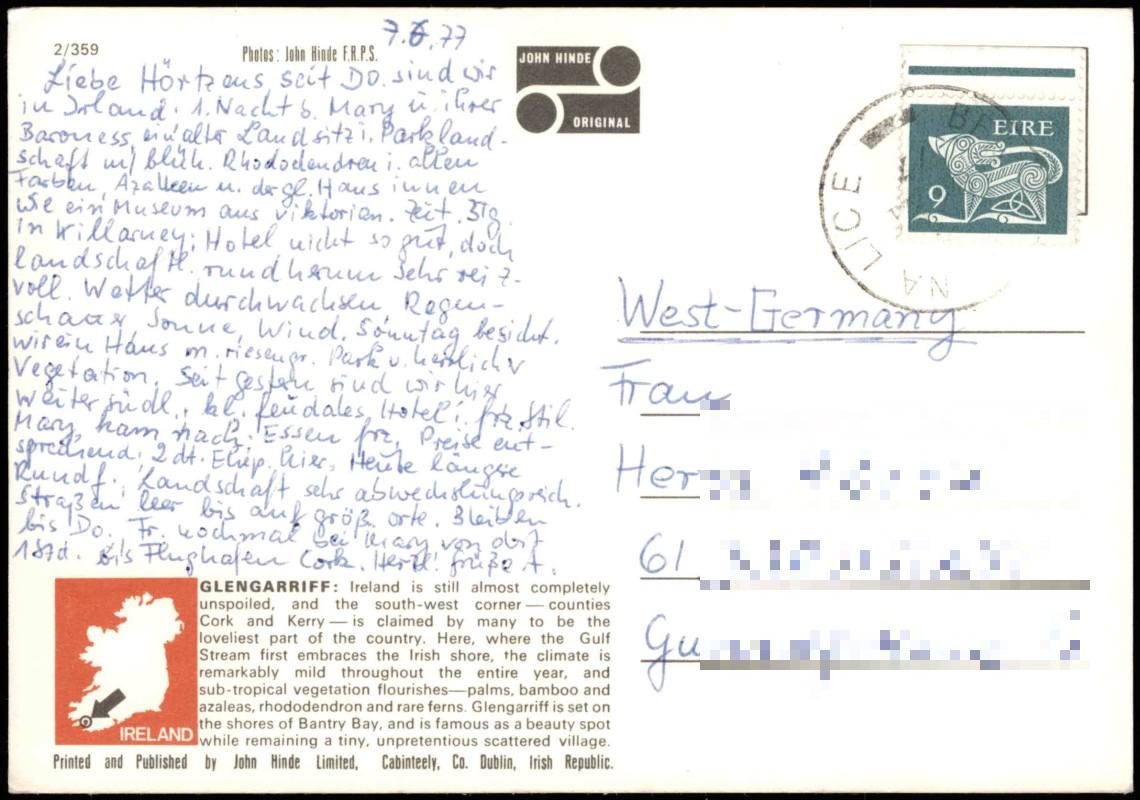 2/359
Photos: John Hinde F.R.P.S.
7.6.77
JOHN HINDE
ORIGINAL
Liebe Hörtzens seit Do. sind wir
in Irland. 1. Nacht b. Mary u. ihrer
Baroness, ein alter Landsitz i. Parkland-
schaft m/ blüh. Rhododendren i. allen
Farben, Azaleen u. dergl. Haus innen
wie ein Museum aus viktorian. Zeit. 3Tg.
in Killarney; Hotel nicht so gut, doch
landschaftl. rundherum sehr reiz-
voll. Wetter durchwachsen, Regen-
schauer, Sonne, Wind. Sonntag besicht.
wir ein Haus m. riesengr. Park u. herrlich
Vegetation. Seit gestern sind wir hier
weiter südl., kl. feudales Hotel i. frz. Stil.
Mary kam nach. Essen frz. Preise ent-
sprechend. 2 dt. Ehep. hier. Heute längere
Rundf., Landschaft sehr abwechslungsreich.
Straßen leer bis auf größ. orte. Bleiben
bis Do. Fr. nochmal bei Mary von dort
bis Flughafen Cork. Herzl. grüße A.
EIRE
9
NA LICE
BE
West-Germany
Frau
Herrn
61
Gu
IRELAND
GLENGARRIFF: Ireland is still almost completely
unspoiled, and the south-west corner — counties
Cork and Kerry — is claimed by many to be the
loveliest part of the country. Here, where the Gulf
Stream first embraces the Irish shore, the climate is
remarkably mild throughout the entire year, and
sub-tropical vegetation flourishes—palms, bamboo and
azaleas, rhododendron and rare ferns. Glengarriff is set on
the shores of Bantry Bay, and is famous as a beauty spot
while remaining a tiny, unpretentious scattered village.
Printed and Published by John Hinde Limited, Cabinteely, Co. Dublin, Irish Republic.